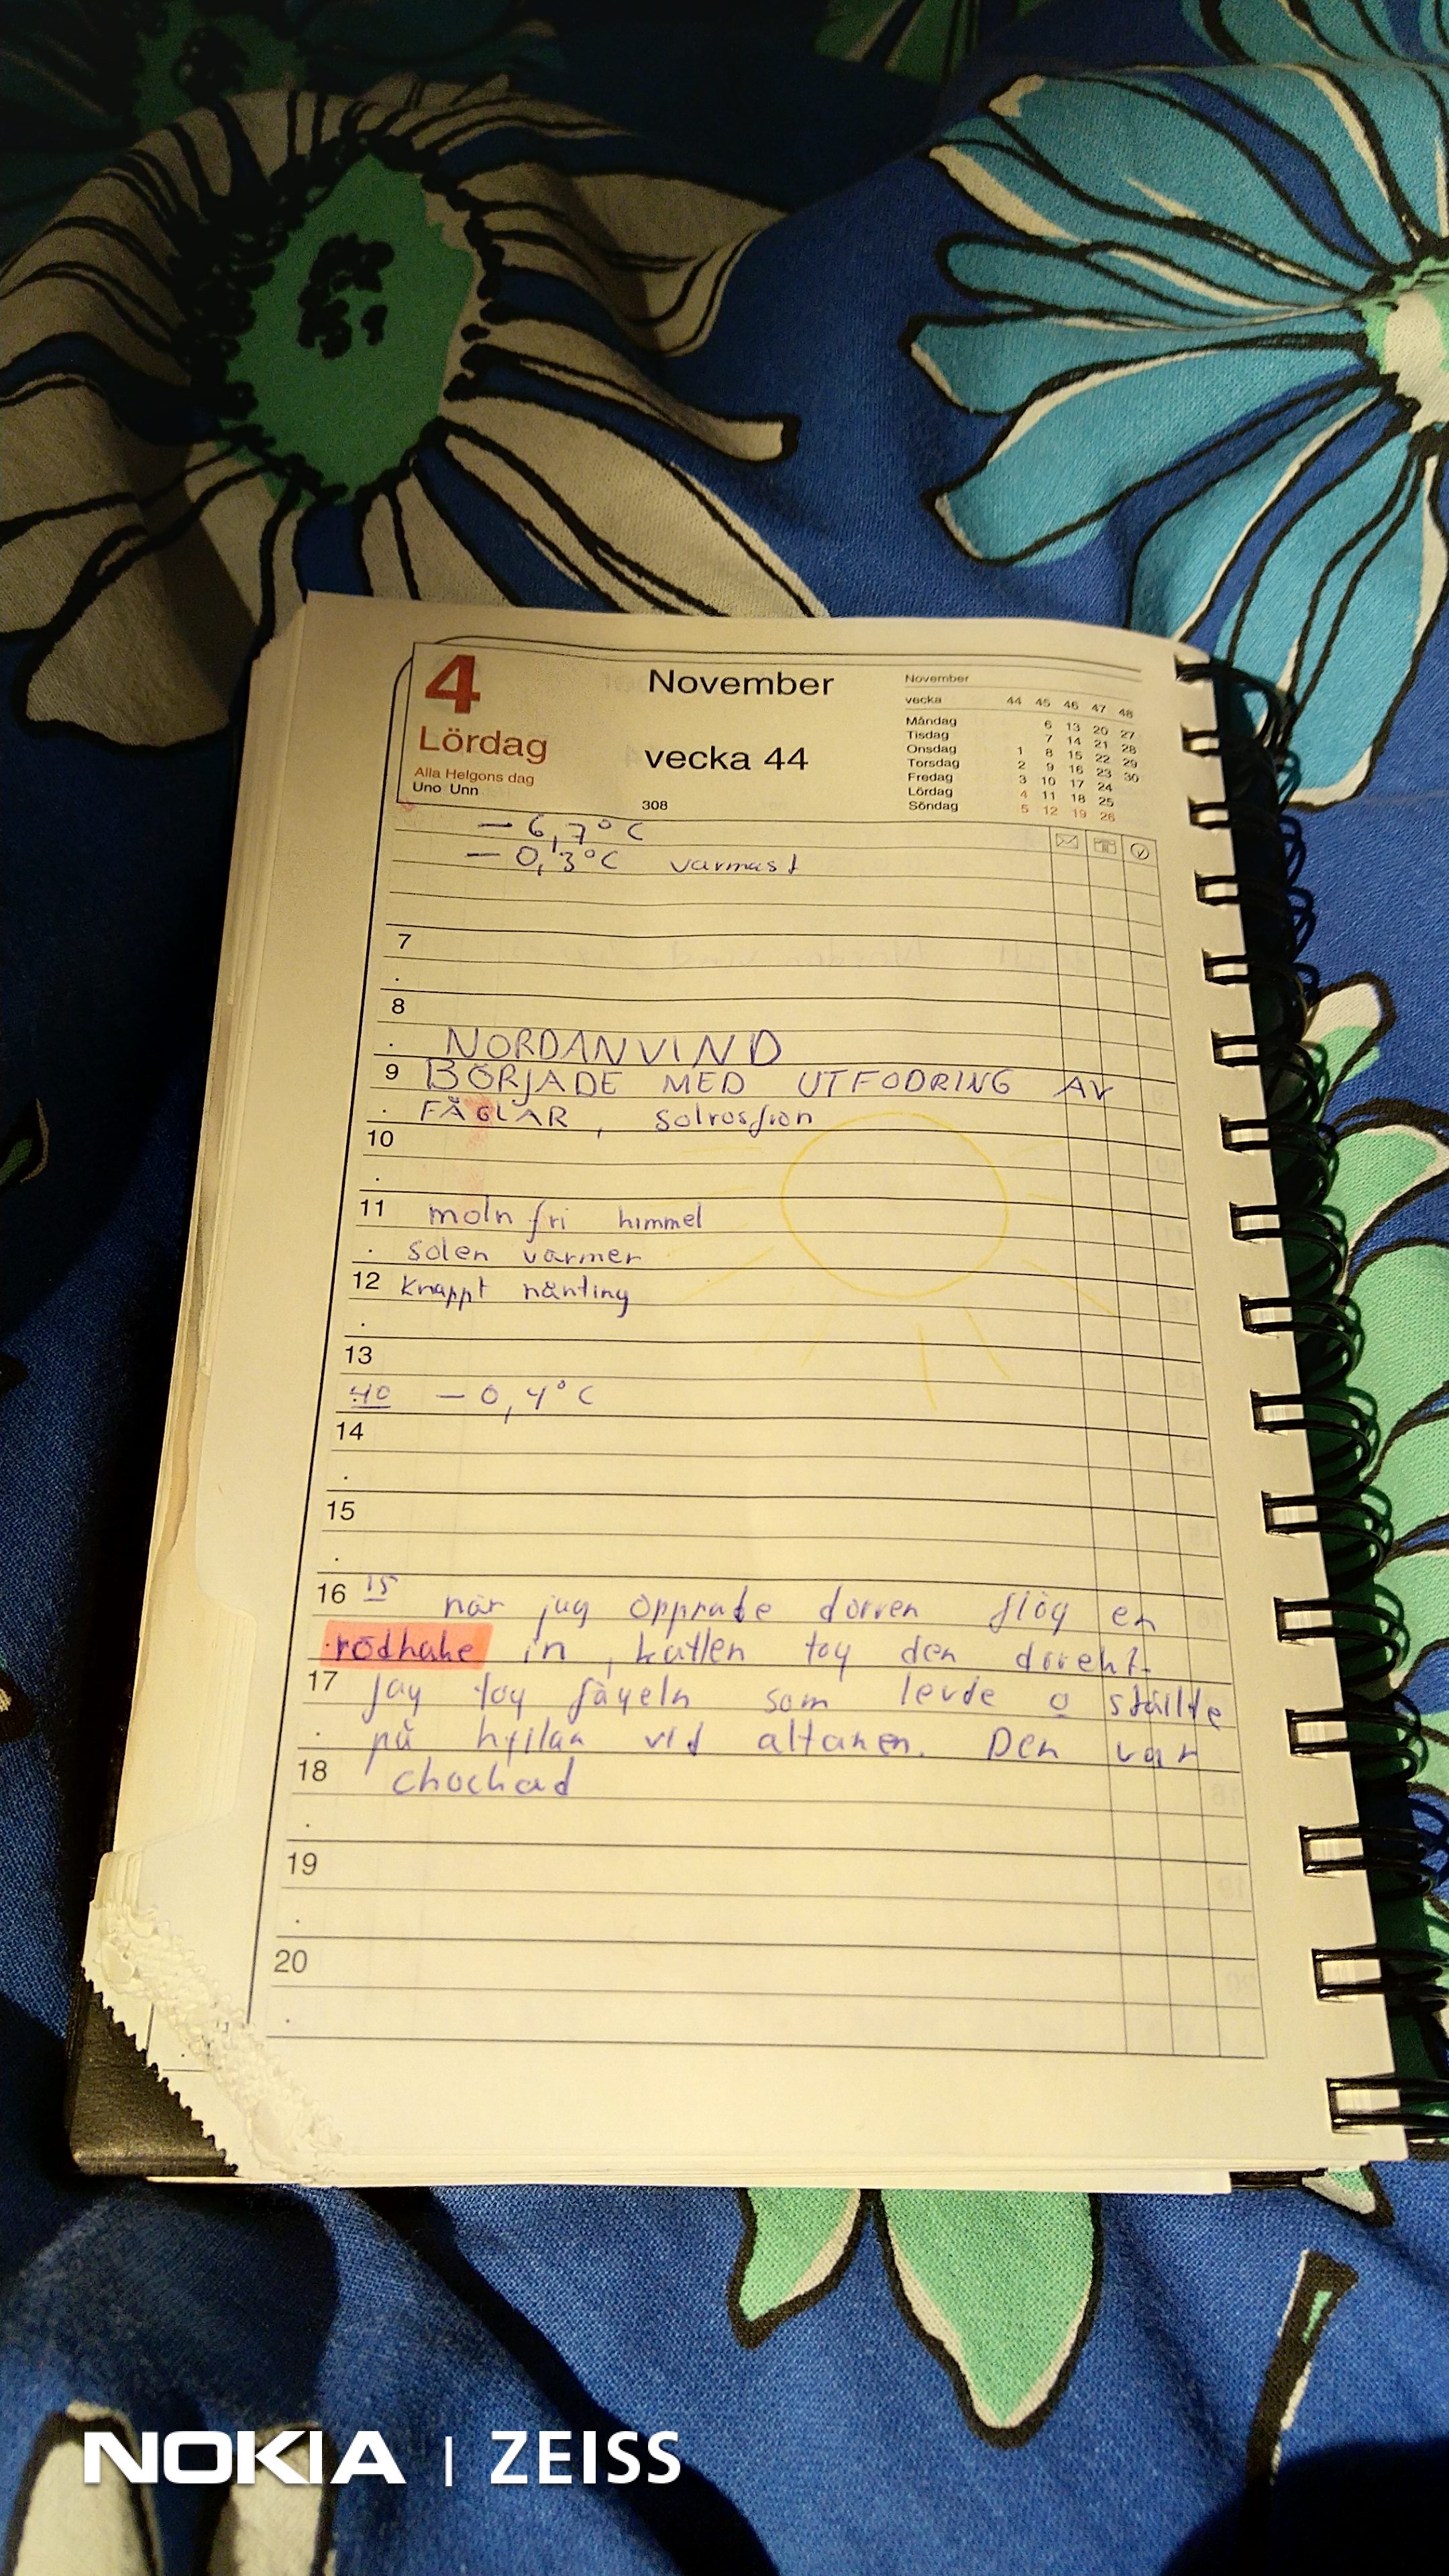 4 November
Lördag vecka 44
Alla Helgons dag
Uno Unn
308
November
vecka 44 45 46 47 48
Måndag 6 13 20 27
Tisdag 7 14 21 28
Onsdag 1 8 15 22 29
Torsdag 2 9 16 23 30
Fredag 3 10 17 24
Lördag 4 11 18 25
Söndag 5 12 19 26
- 6,7°C
- 0,3°C varmast
7
8
NORDANVIND
9 BÖRJADE MED UTFODRING AV
FÅGLAR, solrosfrön
10
11 molnfri himmel
solen värmer
12 knappt nånting
13
40 - 0,4°C
14
15
16 15 när jag öppnade dörren flög en
rödhake in, katten tog den direkt.
17 Jag tog fågeln som levde o ställte
på hyllan vid altanen. Den var
18 chockad
19
20
NOKIA | ZEISS